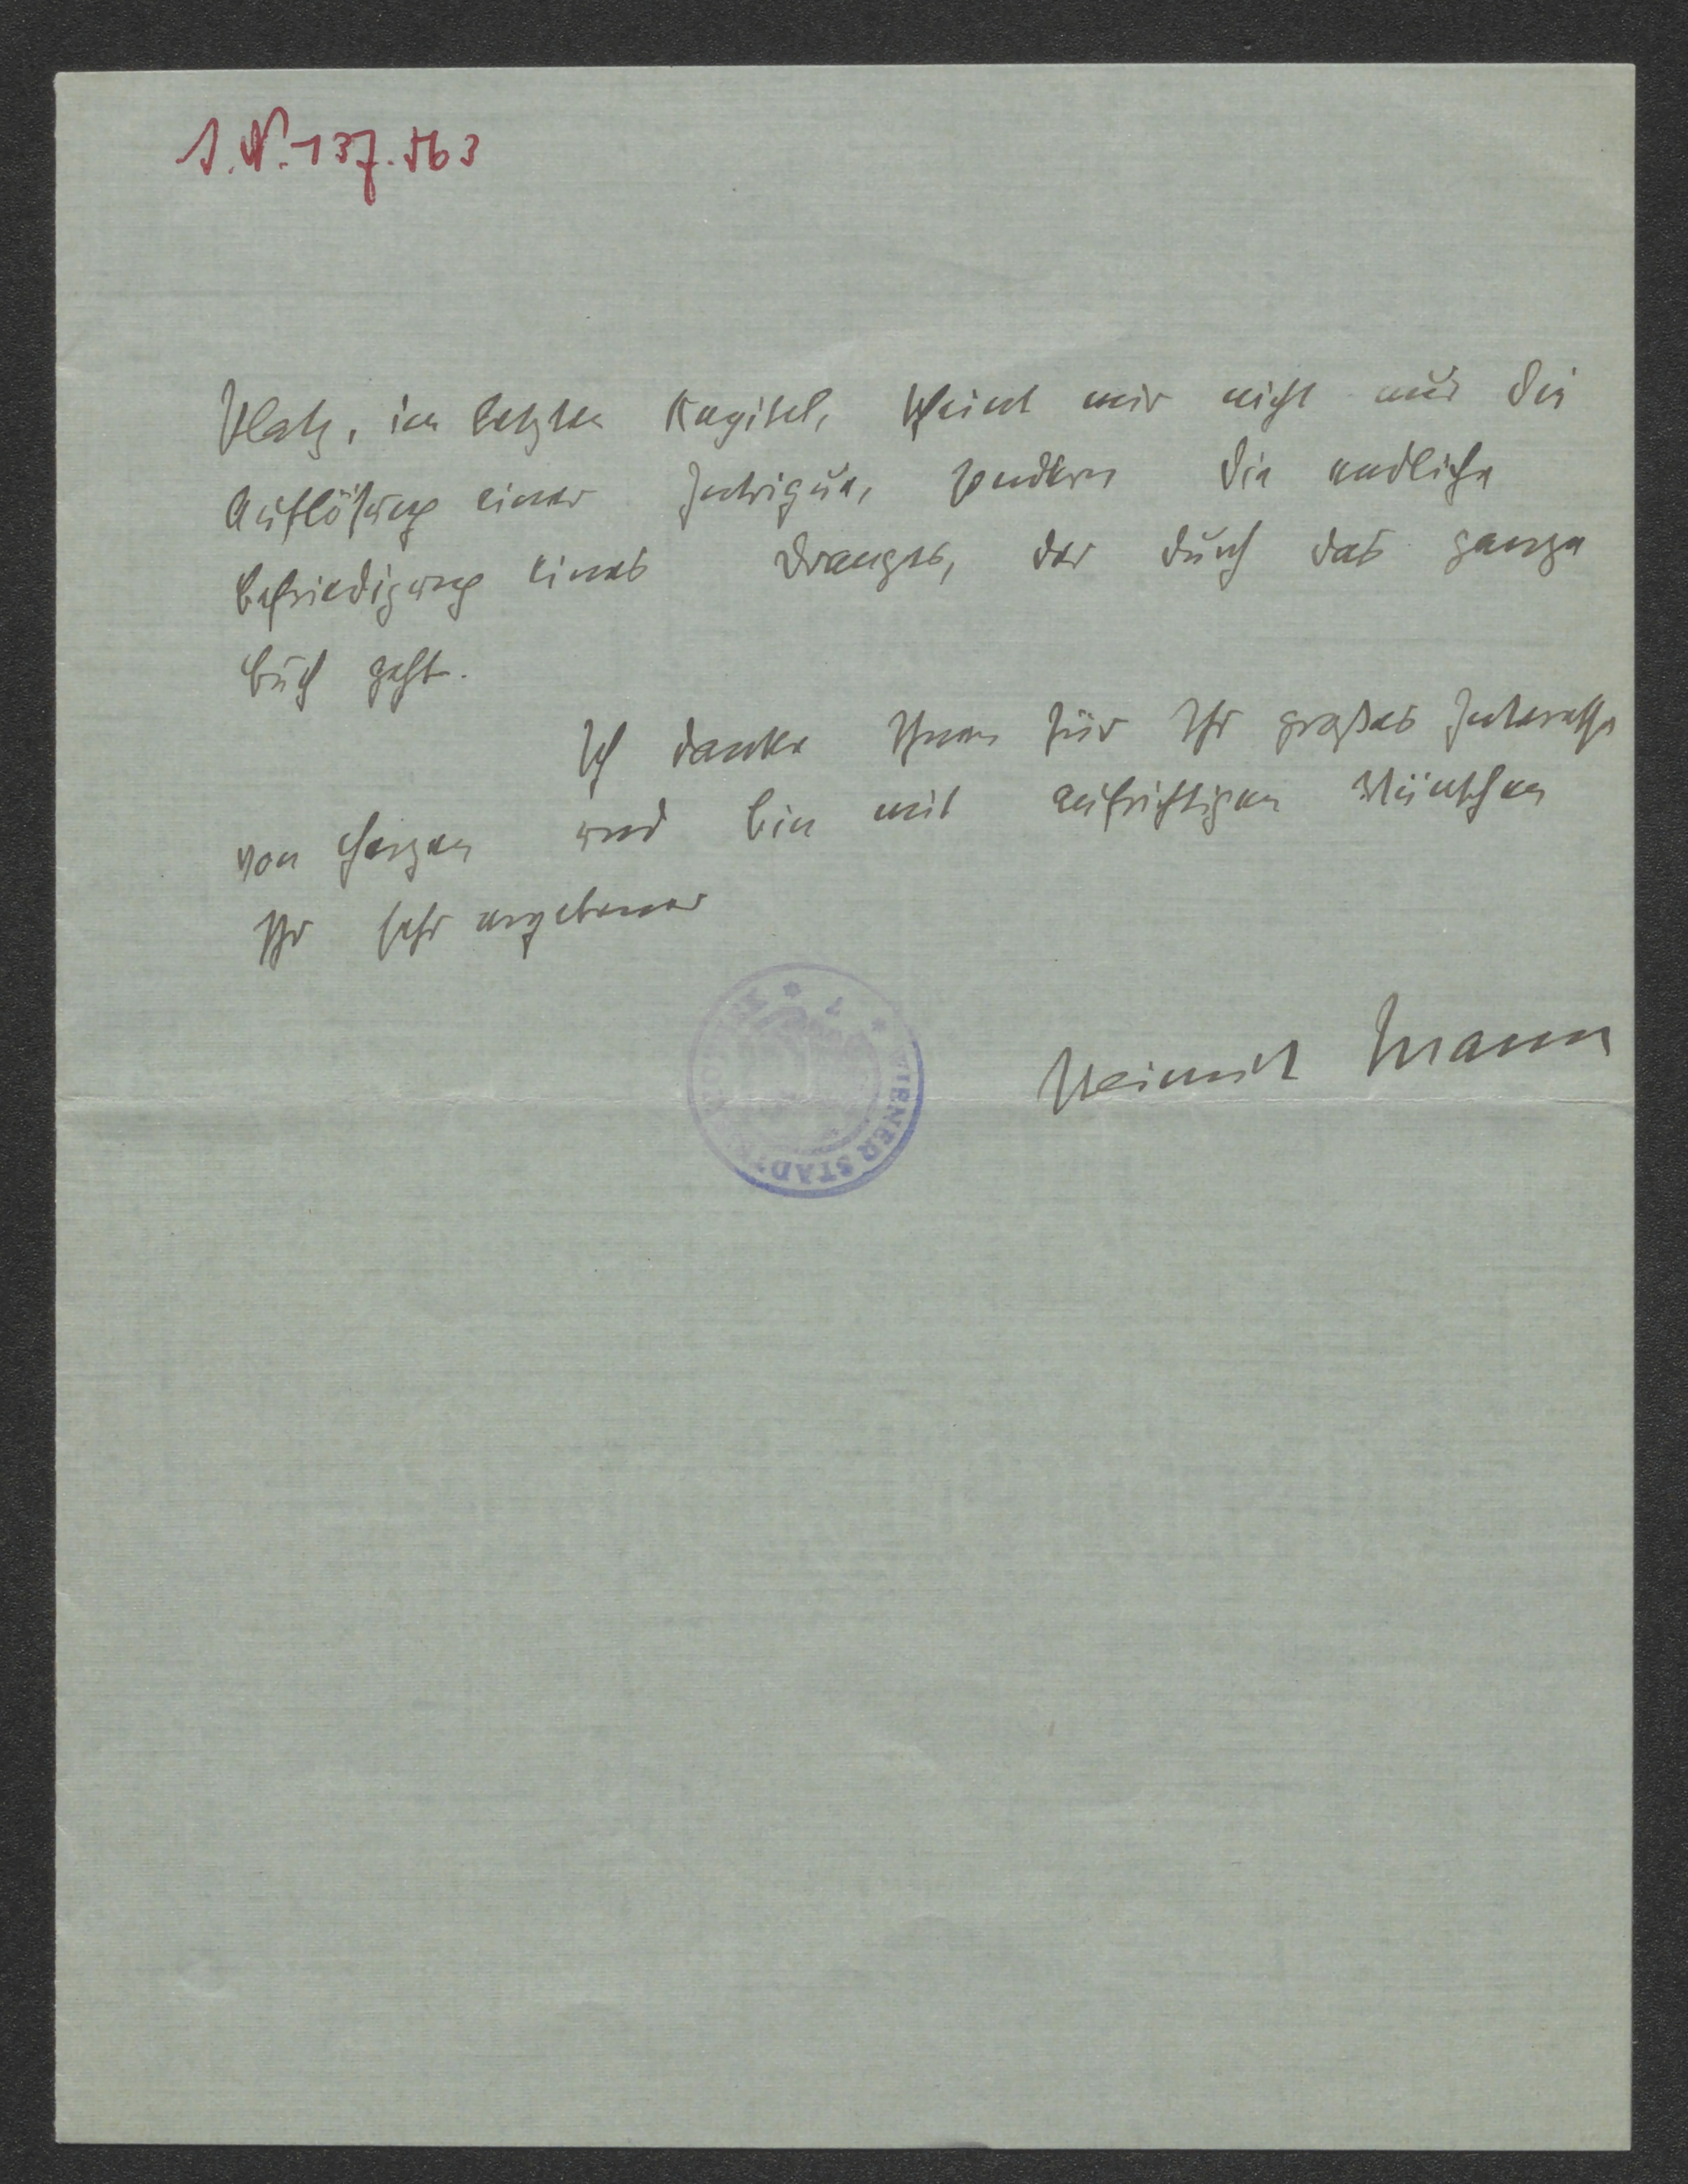 I.N. 137.563
Platz, im letzten Kapitel, scheint mir nicht nur die
Auflösung einer Intrigue, sondern die endliche
Befriedigung eines Dranges, der durch das ganze
Buch geht.
Ich danke Ihnen für Ihr großes Interesse
von Herzen und bin mit aufrichtigen Wünschen
Ihr sehr ergebener
Heinrich Mann
WIENER STADT